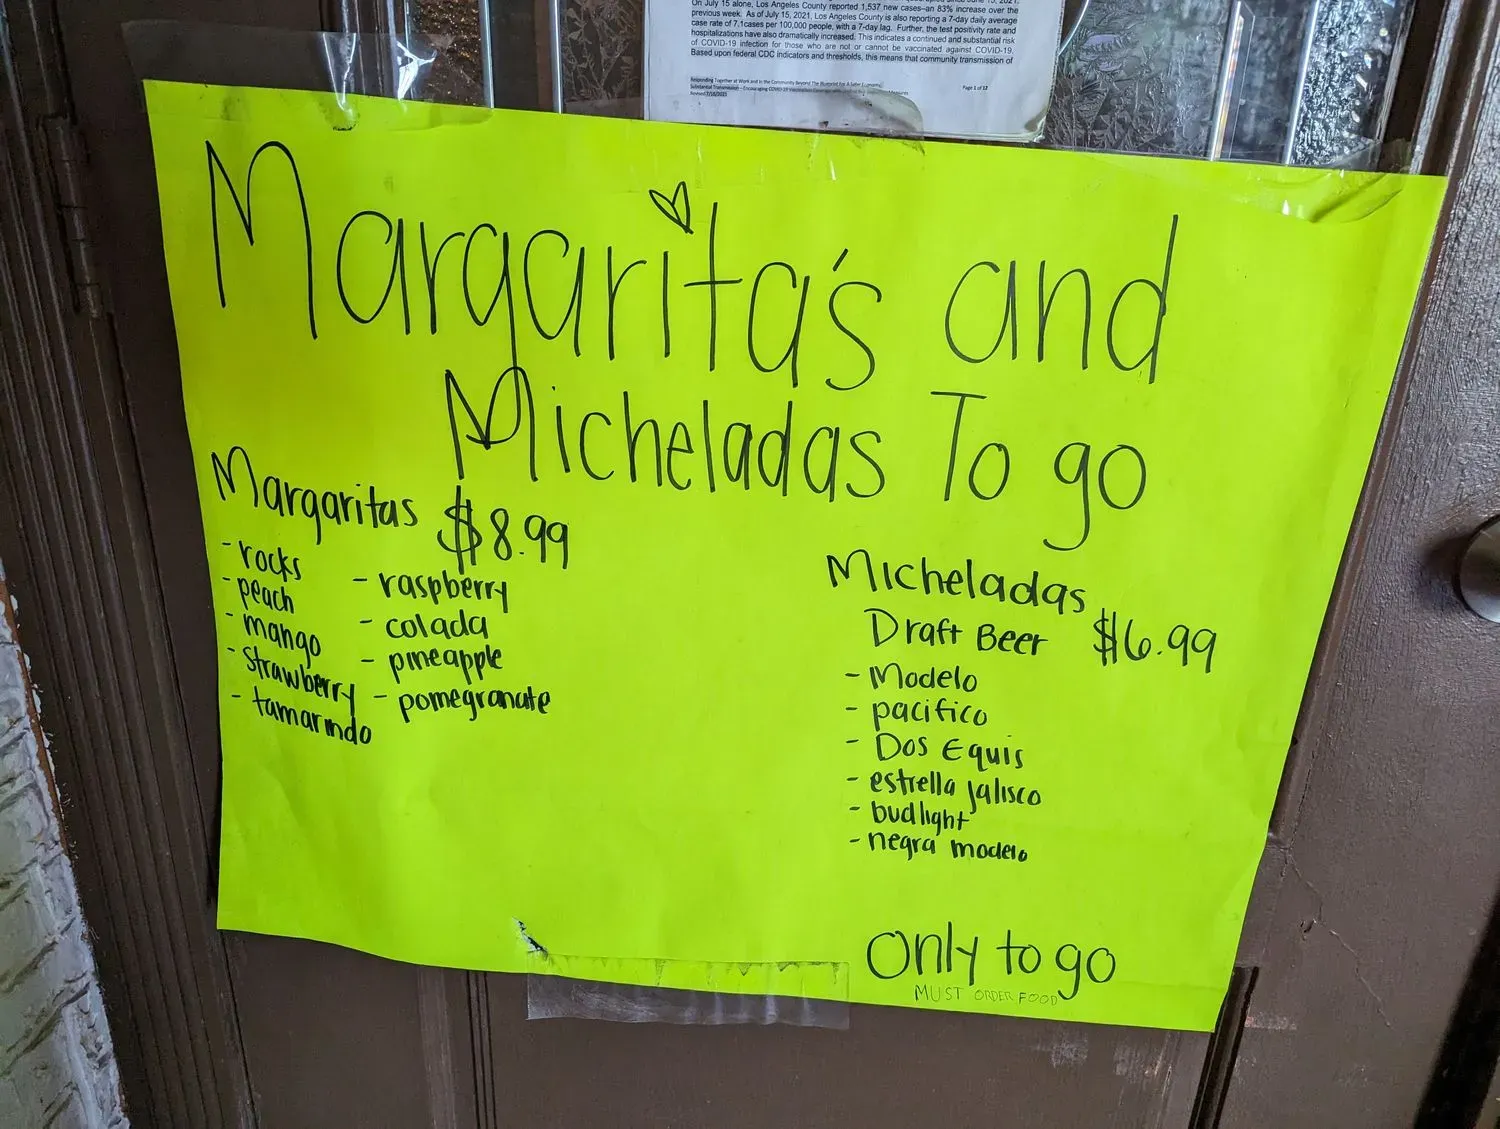 On July 15 alone, Los Angeles County reported 1,537 new cases–an 83% increase over the
previous week. As of July 15, 2021, Los Angeles County is also reporting a 7-day daily average
case rate of 7.1cases per 100,000 people, with a 7-day lag. Further, the test positivity rate and
hospitalizations have also dramatically increased. This indicates a continued and substantial risk
of COVID-19 infection for those who are not or cannot be vaccinated against COVID-19.
Based upon federal CDC indicators and thresholds, this means that community transmission of
Responding Together at Work and in the Community Beyond The Blueprint For A Safer Economy
Page 1 of 12
Substantial Transmission – Encouraging COVID-19 Vaccination Measures
Revised 7/16/2021
Margarita's and
Micheladas To go
Margaritas $8.99
- rocks
- peach
- mango
- strawberry
- tamarindo
- raspberry
- colada
- pineapple
- pomegranate
Micheladas
Draft Beer $6.99
- Modelo
- pacifico
- Dos Equis
- estrella jalisco
- budlight
- negra modelo
Only to go
MUST ORDER FOOD